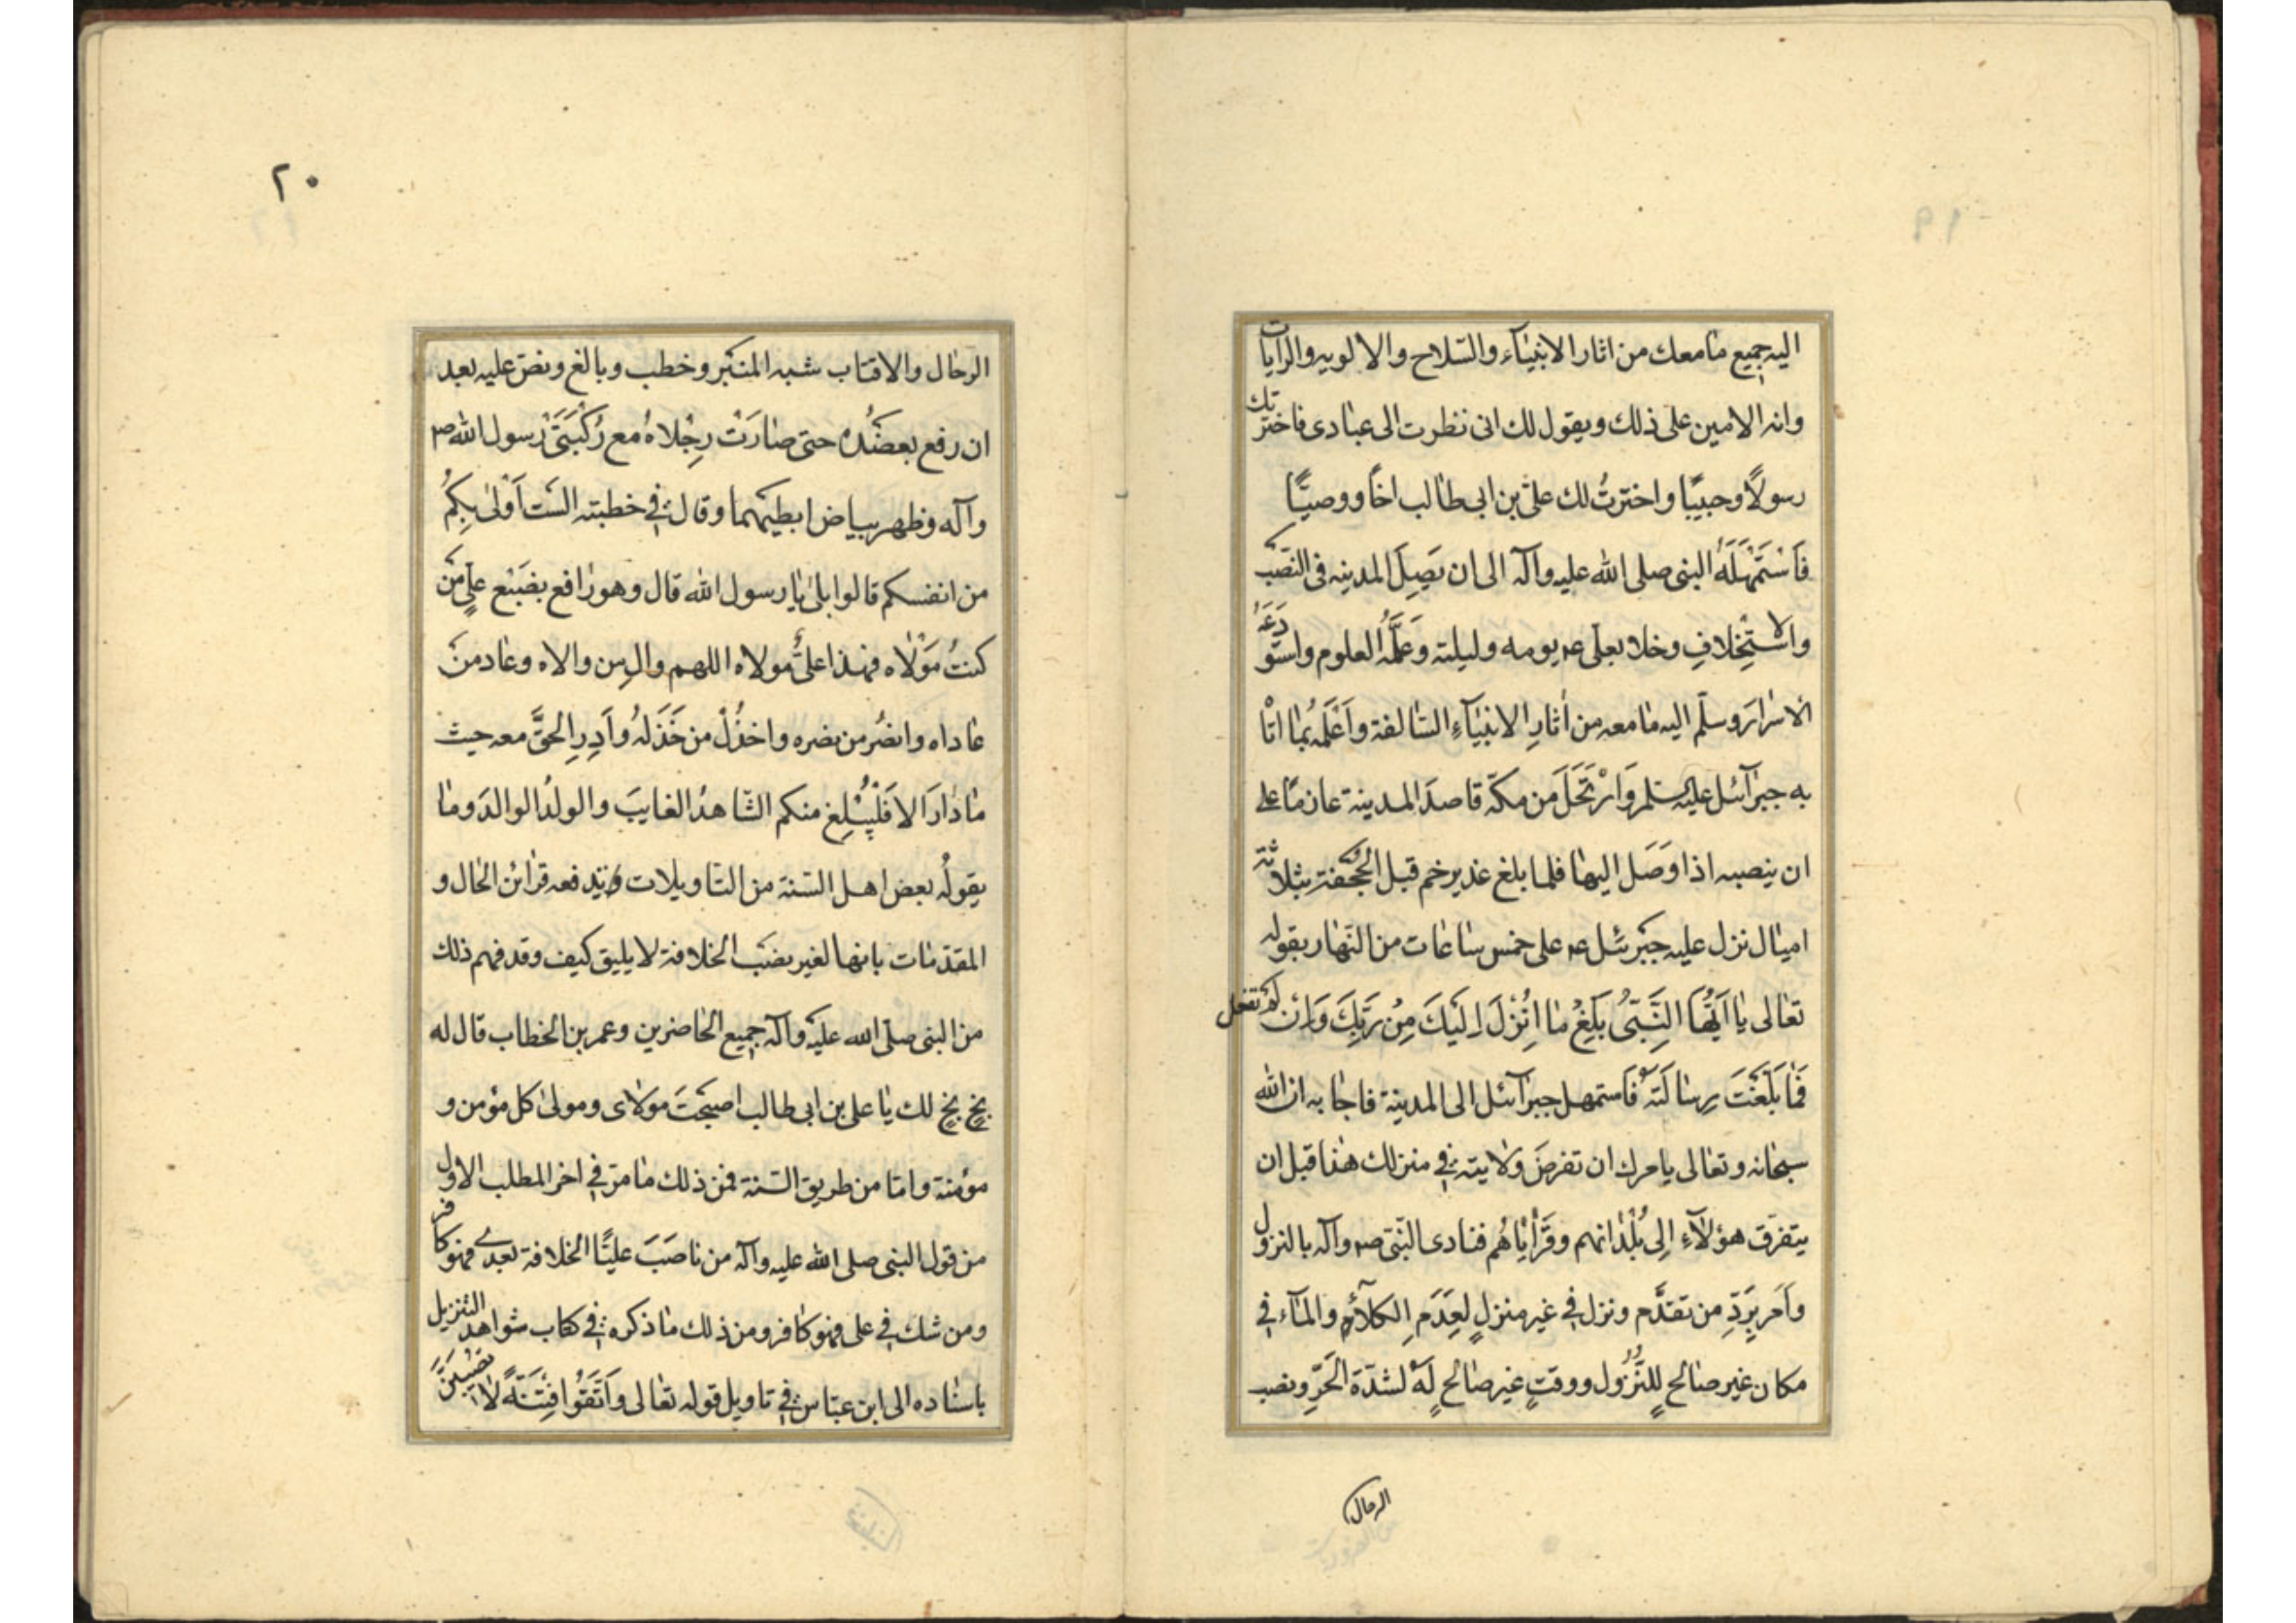 اليه جميع مامعك من اثار الانبياء والسّلاح والالويه والرايات
وانه الامين على ذلك ويقول لك انى نظرت الى عبادى فاخترتك
رسولًا وحبيبًا واخترتُ لك علىّ بن ابى طالب اخًا ووصيًّا
فَاسْتَمْهَلَهُ النبى صلى الله عليه وآله الى ان يَصِلَ المدينه فى النَصْبِ
والاسْتِخْلافِ وخلا بعلى ع يومه وليلته وَعَلَّمَهُ العلوم واستودَعَهُ
الاسْرارَ وسلّم اليه مامعه من اٰثارِ الانبيَاءِ السّالفة واَعْلَمَهُ بما اتٰا
به جبرآئل عليه السلم وَارْتَحَلَ من مكّة قاصدَ المدينة عازمًا على
ان ينصبه اذا وَصَل اليها فلما بلغ غدير خم قبل الجُحْفة بثلاثة
اميال نزل عليه جبرئل ع على خمس ساعات من النّهار بقوله
تعالى يا اَيُّهَا النَّبىُّ بَلِّغْ مٰا اُنْزِلَ اِلَيْكَ مِنْ رَبِّكَ وَاِنْ لَمْ تَفعل
فَمٰا بَلَّغْتَ رِسٰالَتَهُ فَاستمهل جبرآئل الى المدينة فاجابه ان الله
سبحانه وتعالى يامرك ان تفرضَ ولايته فى منزلك هذا قبل ان
يتفرّق هؤلآءِ اِلى بُلْدٰانهم وقَرٰايٰاهُم فنادى النّبىّ ص وآله بالنزول
واَمَر بِرَدِّ من تقدَّم ونزل فى غير منزلٍ لِعَدَمِ الكلاء والمآء فى
مكان غير صٰالحٍ للنُّزُول ووقتٍ غير صٰالحٍ لَهُ لشدّة الحَرِّ ونصب
الرحال
٢٠
الرحٰال والاقتاب شبه المنبر وخطب وبالغ ونصّ عليه بعد
ان رفع بعضُدهِ حتى صٰارَتْ رِجْلاهُ مع رُكْبَتَىْ رسول الله ص
وآله وظهر بياض ابطيهما وقال فى خطبته الَسْتُ اَوْلىٰ بِكُمْ
من انفسكم قالوا بلىٰ يٰا رسول الله قال وهو رٰافع بضَبْع علىٍ مَنْ
كنتُ مَوْلٰاه فهذا علىٌّ مولاه اللهم والِ من والاه وعاد منْ
عٰاداه وانصُر من نصره واخذُلْ من خَذَلهُ واَدِرِ الحقَّ معه حيث
مٰا دٰارَ الا فَلْيُبْلِغ منكم الشّاهدُ الغايبَ والولدُ الوالدَ ومٰا
يقولُه بعض اهل السّنة من التاويلات يدفعه قرٰائن الحٰال و
المقدّمات بانها لغير نصْبِ الخلافة لا يليق كيف وقد فهم ذلك
من النبى صلّى الله عليه وآله جميع الحٰاضرين وعمر بن الخطاب قال له
بخٍ بخٍ لك يٰا على بن ابى طالب اصبحْتَ مولاى ومولىٰ كل مؤمن و
مؤمنة وامّا من طريق السّنة فمن ذلك مٰا مرّ فى اخر المطلب الاول
من قول النبى صلى الله عليه وآله من ناصَبَ عليًّا الخلافة بعدى فهو كافر
ومن شك فى على فهو كافر ومن ذلك مٰا ذكره فى كتاب شواهد التنزيل
باسنٰاده الى ابن عبّاس فى تاويل قوله تعٰالى واَتّقُوا فِتْنَةً لٰا تُصِيبَنَّ